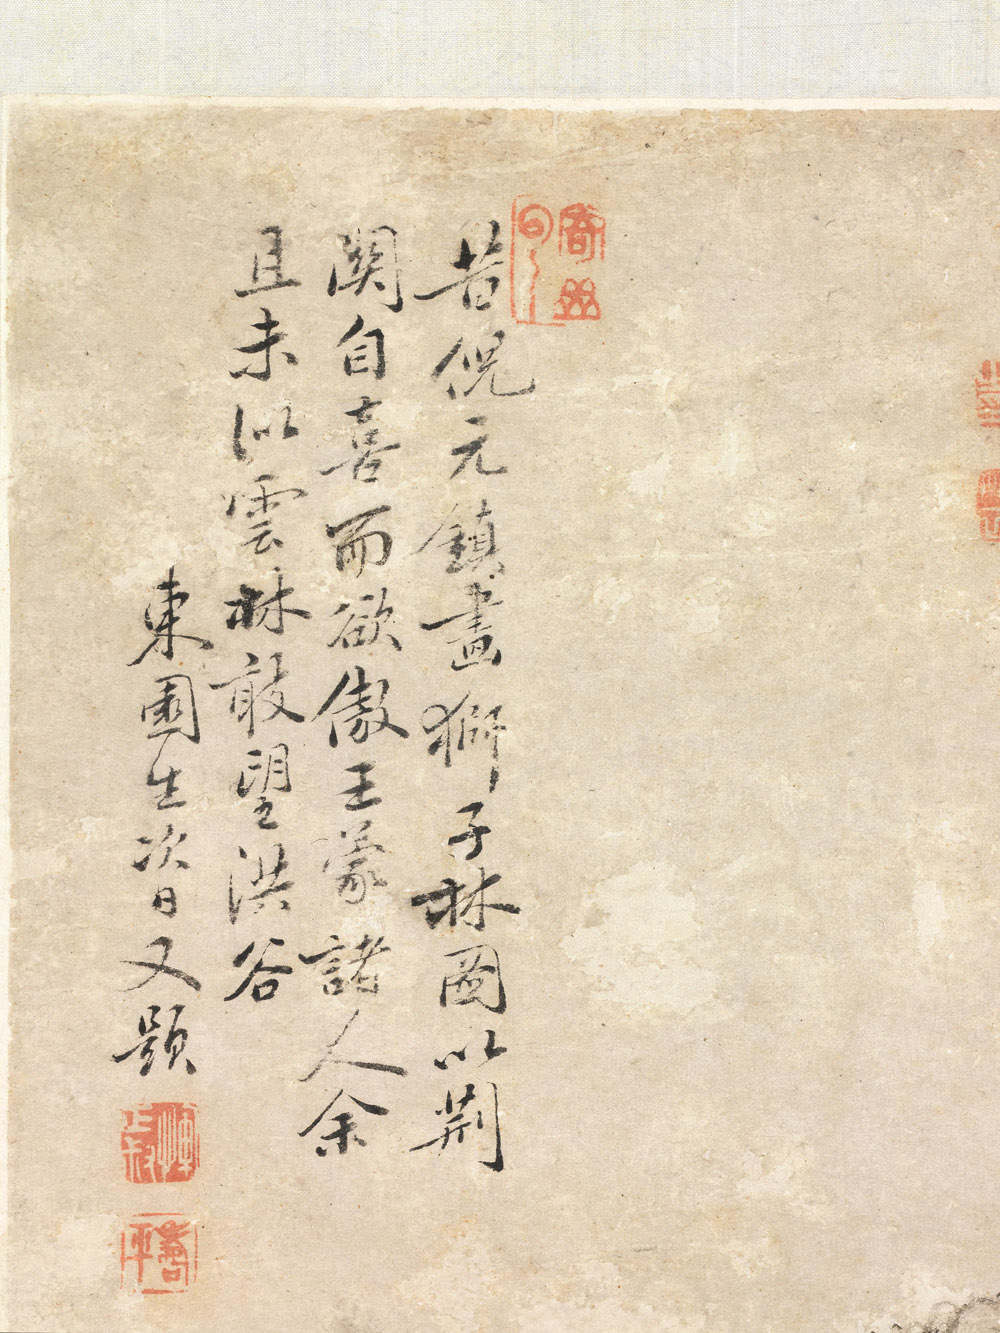 昔倪元鎮畫獅子林圖以荆
関自喜而欲傲王蒙諸人余
且未似雲林敢望洪谷
東園生次日又題
壽平